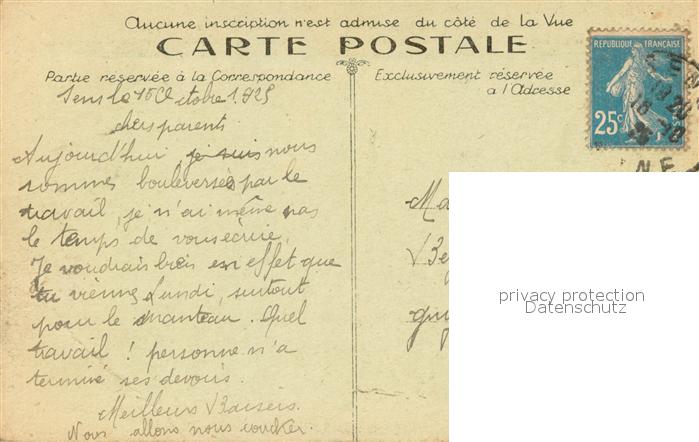 Aucune inscription n'est admise du côté de la Vue
CARTE POSTALE
Partie réservée à la Correspondance
Exclusivement réservée
a l'Adresse
RÉPUBLIQUE FRANÇAISE
25c
Sens le 15 Octobre 1925
chers parents
Aujourd'hui je suis nous
sommes bouleversés par le
travail, je n'ai même pas
le temps de vous écrire.
Je voudrais bien en effet que
tu vienne Lundi, surtout
pour le manteau. Quel
travail ! personne n'a
terminé ses devoirs.
Meilleurs Baisers.
Nous allons nous coucher.
privacy protection
Datenschutz